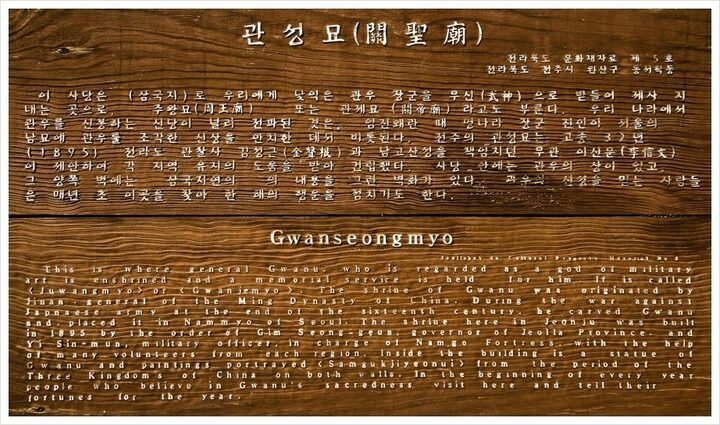 관성묘(關聖廟)
전라북도 문화재자료 제 5 호
전라북도 전주시 완산구 동서학동
이 사당은 (삼국지)로 우리에게 낯익은 관우 장군을 무신(武神)으로 받들어 제사 지
내는 곳으로 주왕묘(周王廟) 또는 관제묘(關帝廟)라고도 부른다. 우리 나라에서
관우를 신봉하는 신앙이 널리 전파된 것은, 임진왜란 때 명나라 장군 진인이 서울의
남묘에 관우를 조각한 신상을 안치한 데서 비롯된다. 전주의 관성묘는 고종 32년
(1895) 전라도 관찰사 김성근(金聲根)과 남고산성을 책임지던 무관 이신문(李信文)
이 제안하여 각 지역 유지의 도움을 받아 건립했다. 사당 안에는 관우의 상이 있고,
그 양쪽 벽에는 삼국지연의 의 내용을 그린 벽화가 있다. 관우의 신성을 믿는 사람들
은 매년 초 이곳을 찾아 한 해의 행운을 점치기도 한다.
Gwanseongmyo
Jeollabuk-do Cultural Property Material No.5
This is where general Gwanu, who is regarded as a god of military
art is enshrined and a memorial service is held for him. It is called
<Juwangmyo> or <Gwanjemyo>. The shrine of Gwanu was originated by
Jinan, general of the Ming Dynasty of China. During the war against
Japnaese army at the end of the sixteenth century, he carved Gwanu
and placed it in Nammyo of Seoul. The shrine here in Jeonju was built
in 1895 by the order of Gim Seong-geun, governor of Jeolla Province, and
Yi Sin-mun, military officer, in charge of Namgo Fortress with the help
of many volunteers from each region. Inside the building is a statue of
Gwanu and paintings portrayed <Samgukjiyeonui> from the period of the
Three Kingdoms of China on both walls. In the beginning of every year
people who believe in Gwanu's sacredness visit here and tell their
fortunes for the year.